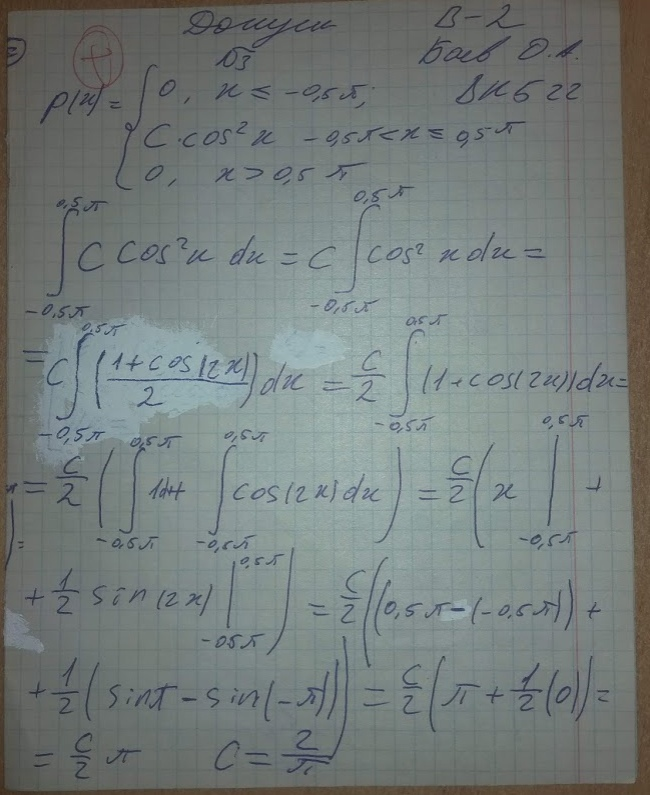 Допуск В-2
№3 Боев О.А.
p(x) = { 0, x ≤ -0,5π; ВКБ22
C·cos²x -0,5π < x ≤ 0,5π
0, x > 0,5π
∫_{-0,5π}^{0,5π} C cos²x dx = C ∫_{-0,5π}^{0,5π} cos² x dx =
= C ∫_{-0,5π}^{0,5π} ((1+cos(2x))/2) dx = C/2 ∫_{-0,5π}^{0,5π} (1+cos(2x))dx =
= C/2 ( ∫_{-0,5π}^{0,5π} 1dx+ ∫_{-0,5π}^{0,5π} cos(2x)dx ) = C/2 ( x |_{-0,5π}^{0,5π} +
+ 1/2 sin(2x) |_{-0,5π}^{0,5π} ) = C/2 ((0,5π-(-0,5π)) +
+ 1/2 (sinπ - sin(-π))) = C/2 (π + 1/2 (0)) =
= C/2 π C = 2/π